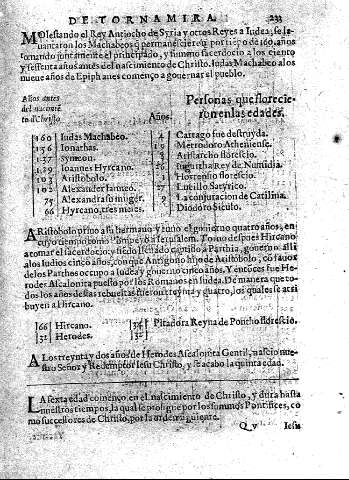 DE TORNAMIRA. 233
MOlestando el Rey Antiocho de Syria y otros Reyes a Iudea, se le-
uantaron los Machabeos q̃ permanescierõ por tiẽpo de 160, años
tomando juntamente el principado, y summo sacerdocio a ciento
y sessenta años antes del nascimiento de Christo. Iudas Machabeo a los
nueue años de Epiphanes començo a gouernar el pueblo.
Años antes
del nacimiẽ
to d'Christo.
Años.
Personas que florecie-
ron en las edades.
160 Iudas Machabeo. Cartago fue destruyda.
156 Ionathas. 19 Metrodoro Atheniense.
137 Symeon. 8 Aristarcho florescio.
129 Ioannes Hyrcano. 26 Iugurtha Rey de Numidia.
103 Aristobolo. 1 Hortensio florescio
102 Alexander Ianneo. 27 Lucillo Satyrico.
75 Alexandra su muger. 9 La conjuracion de Catilina.
66 Hyrcano, tres meses. Diodoro Siculo.
ARistobolo priuo a su hermano y tuuo el gouierno quatro años, en
cuyo tiempo tomo Pompeyo a Ierusalem. Torno despues Hircano
a tomar el sacerdocio; y siendo lleuado captiuo a Parthia, gouerno alli
a los Iudios cinco años, con que Antigono hijo de Aristobolo, cõ fauor
de los Parthos occupo a Iudea y gouerno cinco años. Y entonces fue He-
rodes Ascalonita puesto por los Romanos en Iudea. De manera que to-
dos los años destas rebueltas fueron treynta y quatro, los quales se atri
buyen al Hircano.
66 Hircano. 34 Pitadora Reyna de Poncho florescio.
32 Herodes. 32
A Los treynta y dos años de Herodes Ascalonita Gentil, nascio nue-
stro Señor y Redemptor Iesu Christo, y se acabo la quinta edad.
LA sexta edad començo en el nascimiento de Christo, y dura hasta
nuestros tiempos, la qual se prosigue por los summos Pontifices, co
mo successores de Christo, por la orden siguiente.
Q v Iesu